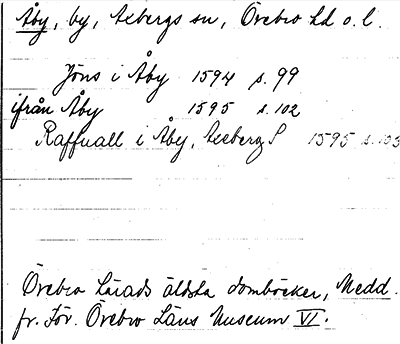 Åby, by, Axbergs sn, Örebro hd o. l.
Jöns i Åby 1594 s. 99
ifrån Åby 1595 s. 102
Raffuall i Åby, Axberg S 1595 s. 103
Örebro härads äldsta domböcker, Medd.
fr. För. Örebro Läns Museum VI.